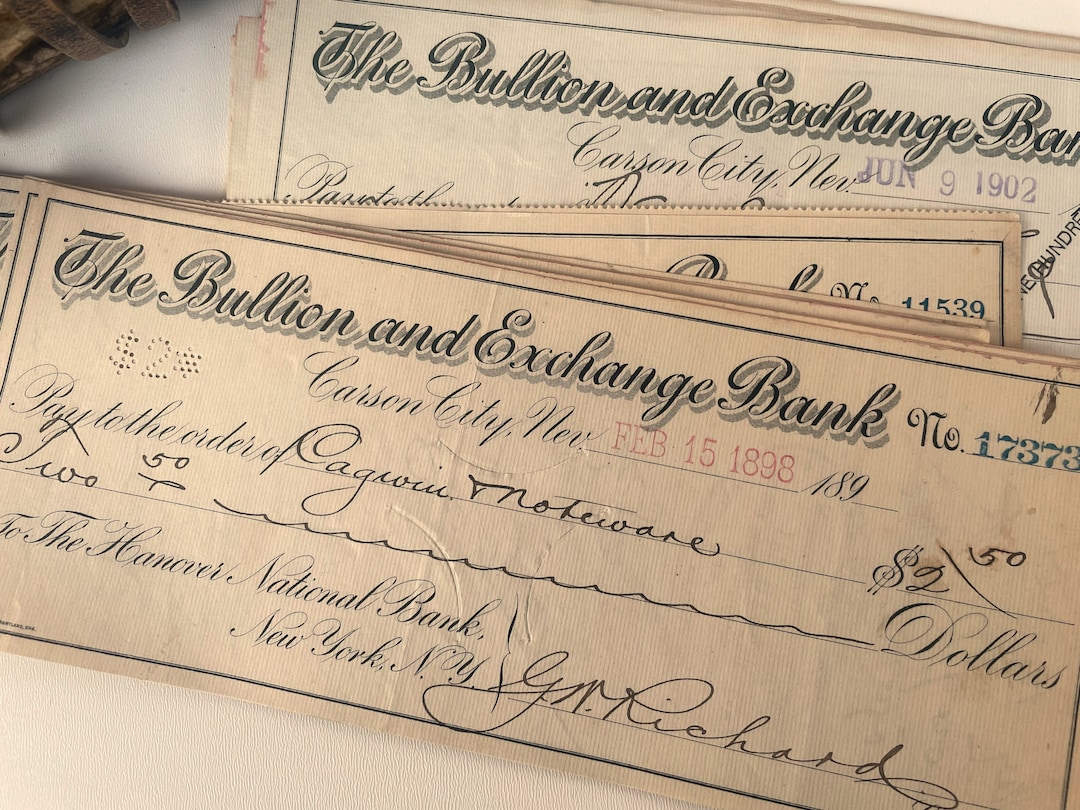 The Bullion and Exchange Ban
Carson City, Nev. JUN 9 1902
Pay to the
NE HUNDRE
Bank No. 11539
The Bullion and Exchange Bank No. 17373
$2*
Carson City, Nev. FEB 15 1898 189
Pay to the order of Cagwin & Noteware $2 50
Two 50 Dollars
To The Hanover National Bank,
New York, N.Y. G.W. Richard